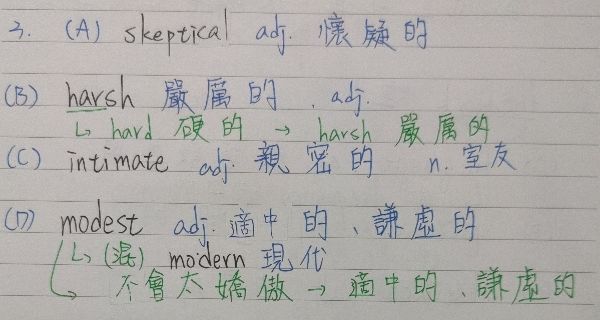 3. (A) skeptical adj. 懷疑的
(B) harsh 嚴厲的 . adj.
↳ hard 硬的 → harsh 嚴厲的
(C) intimate adj. 親密的 n. 室友
(D) modest adj. 適中的、謙虛的
↳ (混) modern 現代
不會太嬌傲 → 適中的、謙虛的